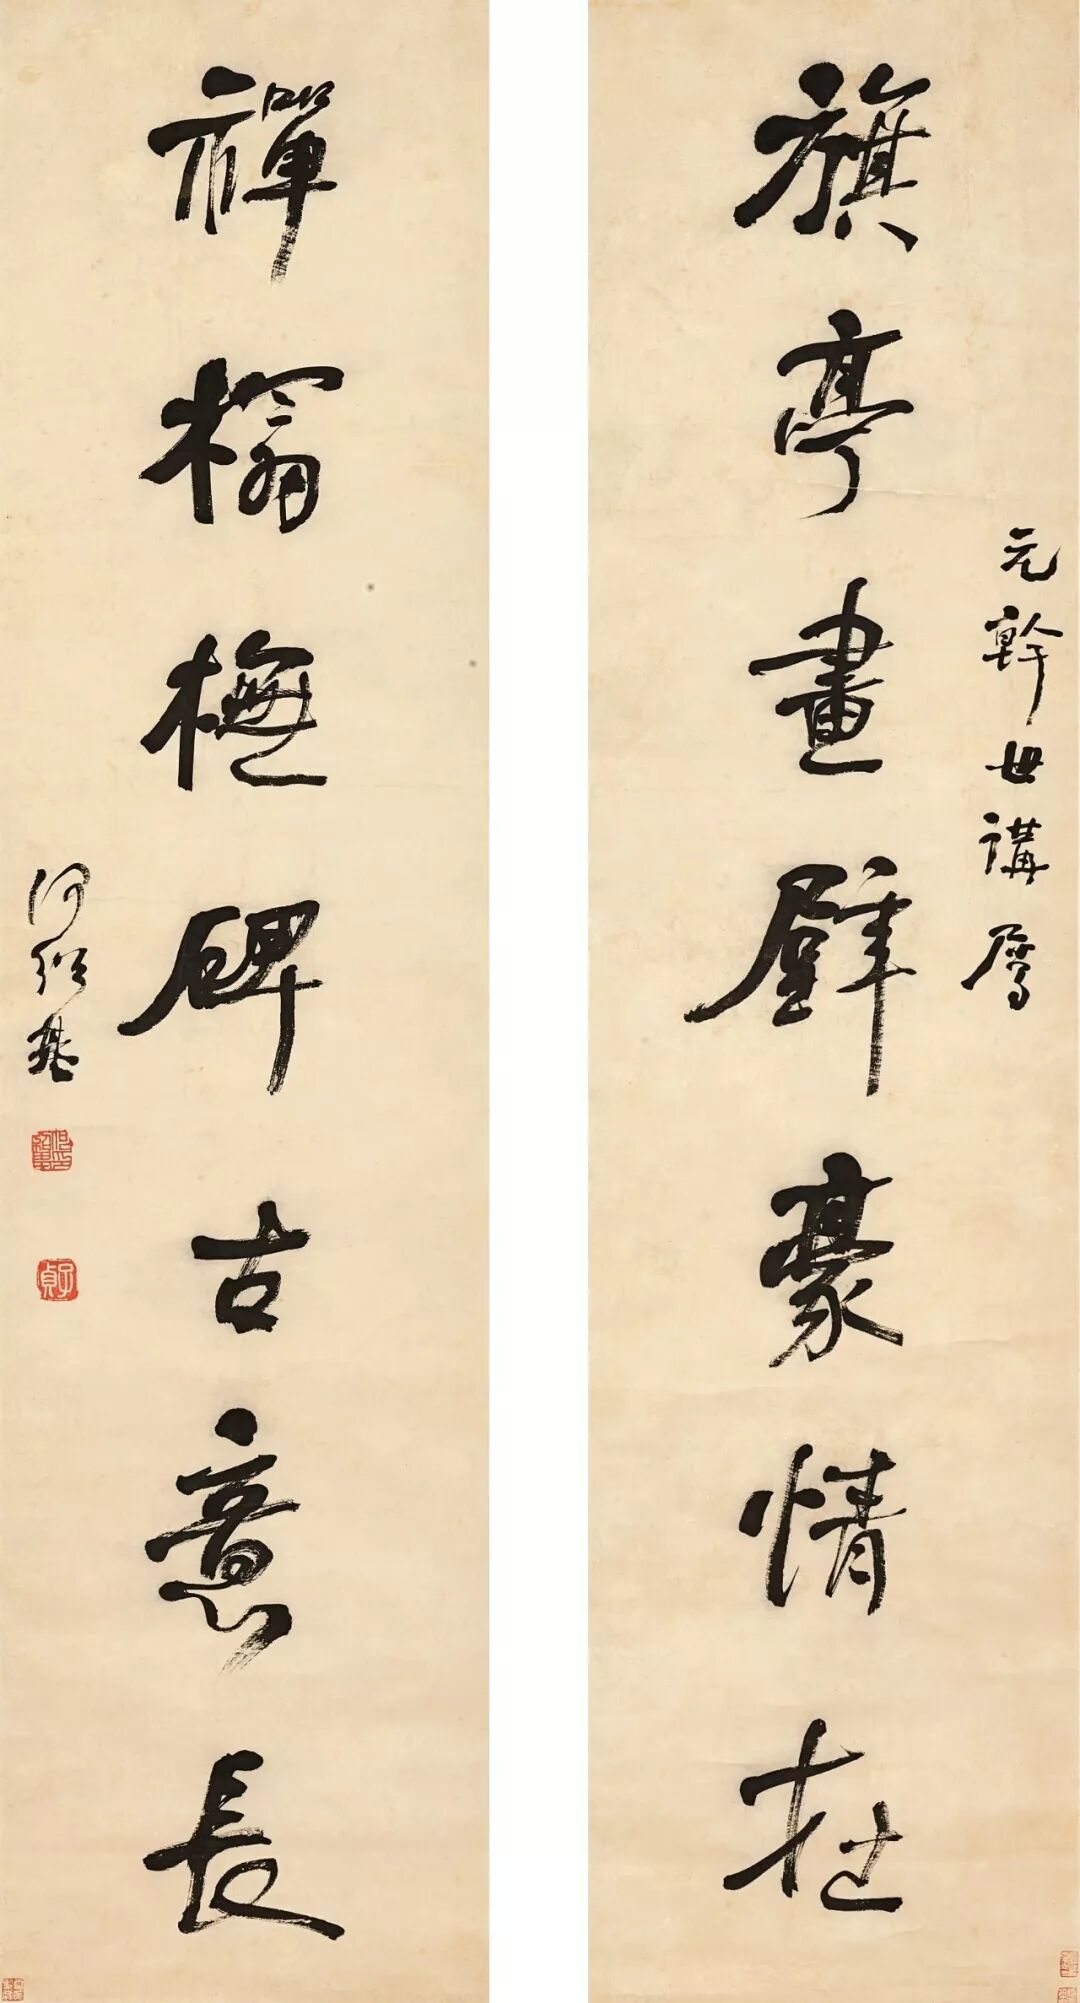 旗亭畫壁豪情在
元幹世講屬
禪榻橅碑古意長
何紹基
子貞